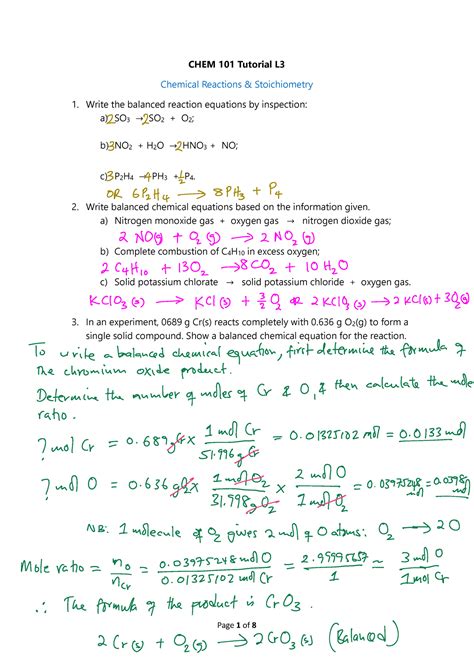 CHEM 101 Tutorial L3
Chemical Reactions & Stoichiometry
1. Write the balanced reaction equations by inspection:
a) 2SO3 → 2SO2 + O2;
b) 3NO2 + H2O → 2HNO3 + NO;
c) 3P2H4 → 4PH3 + ½P4.
OR 6P2H4 → 8PH3 + P4
2. Write balanced chemical equations based on the information given.
a) Nitrogen monoxide gas + oxygen gas → nitrogen dioxide gas;
2 NO(g) + O2 (g) → 2 NO2 (g)
b) Complete combustion of C4H10 in excess oxygen;
2 C4H10 + 13O2 → 8CO2 + 10 H2O
c) Solid potassium chlorate → solid potassium chloride + oxygen gas.
KClO3 (s) → KCl (s) + 3/2 O2 OR 2 KClO3 (s) → 2 KCl(s) + 3O2(g)
3. In an experiment, 0689 g Cr(s) reacts completely with 0.636 g O2(g) to form a
single solid compound. Show a balanced chemical equation for the reaction.
To write a balanced chemical equation, first determine the formula of
the chromium oxide product.
Determine the number of moles of Cr & O, & then calculate the mole
ratio.
? mol Cr = 0.689 g Cr x 1 mol Cr / 51.996 g Cr = 0.01325102 mol = 0.0133 mol
? mol O = 0.636 g O2 x 1 mol O2 / 31.998 g O2 x 2 mol O / 1 mol O2 = 0.03975248 mol = 0.0398 mol
NB: 1 molecule of O2 gives 2 mol of O atoms: O2 → 2O
Mole ratio = nO / nCr = 0.03975248 mol O / 0.01325102 mol Cr = 2.99995657 / 1 ≈ 3 mol O / 1 mol Cr
∴ The formula of the product is CrO3.
Page 1 of 8
2 Cr(s) + O2(g) → 2 CrO3(s) (Balanced)